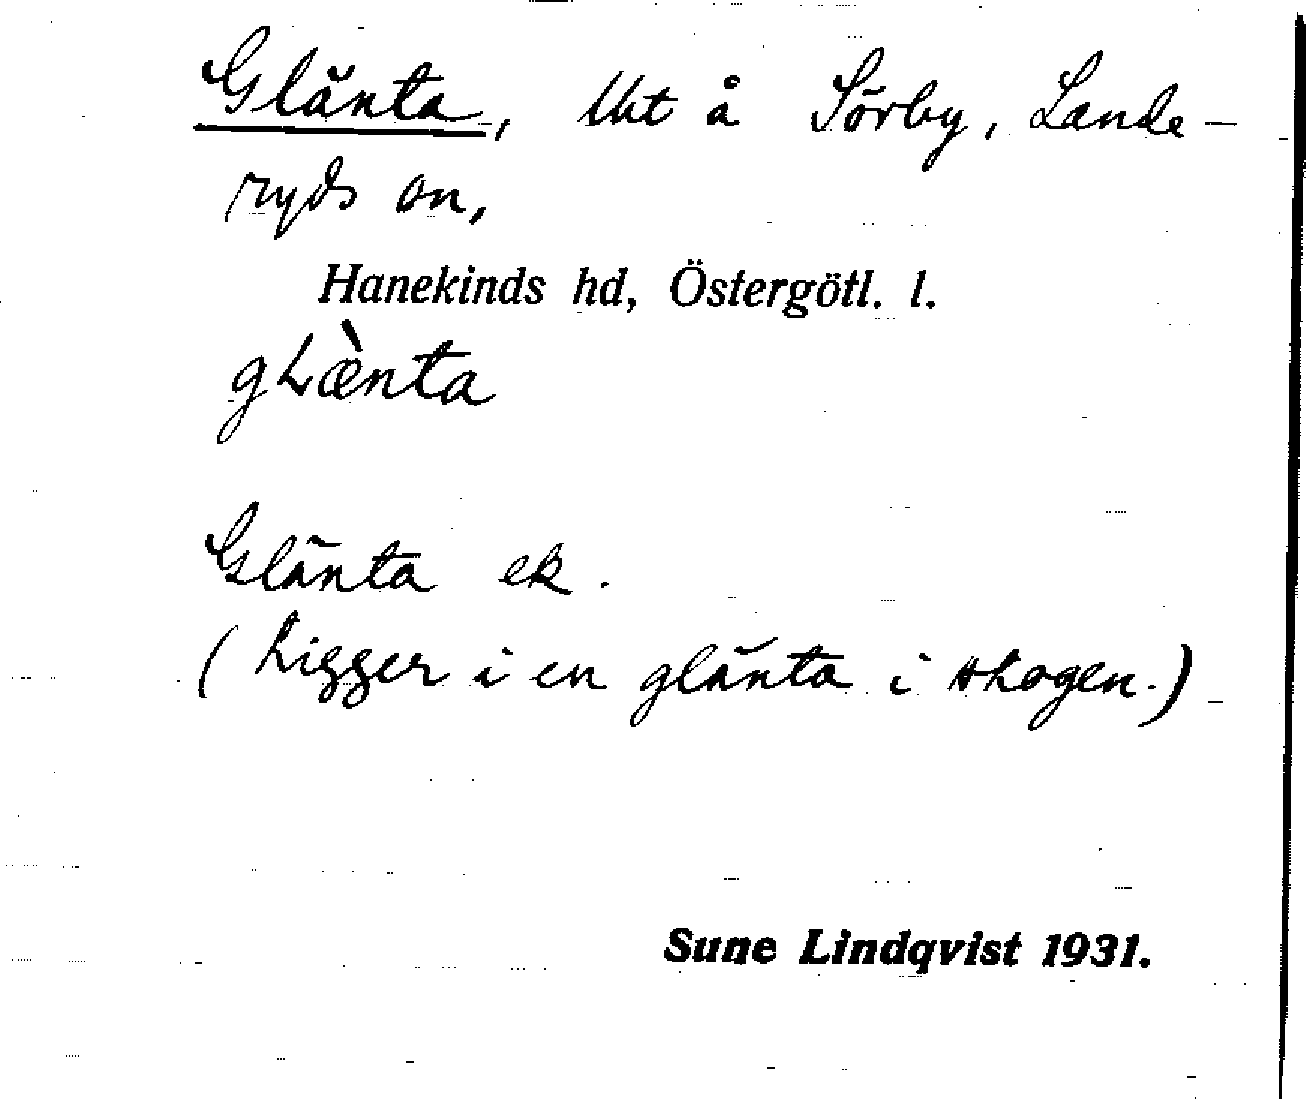 Glänta, lht å Sörby, Lande-
ryds sn,
Hanekinds hd, Östergötl. l.
gLæ̀nta
Glänta ek.
(Ligger i en glänta i skogen.)
Sune Lindqvist 1931.